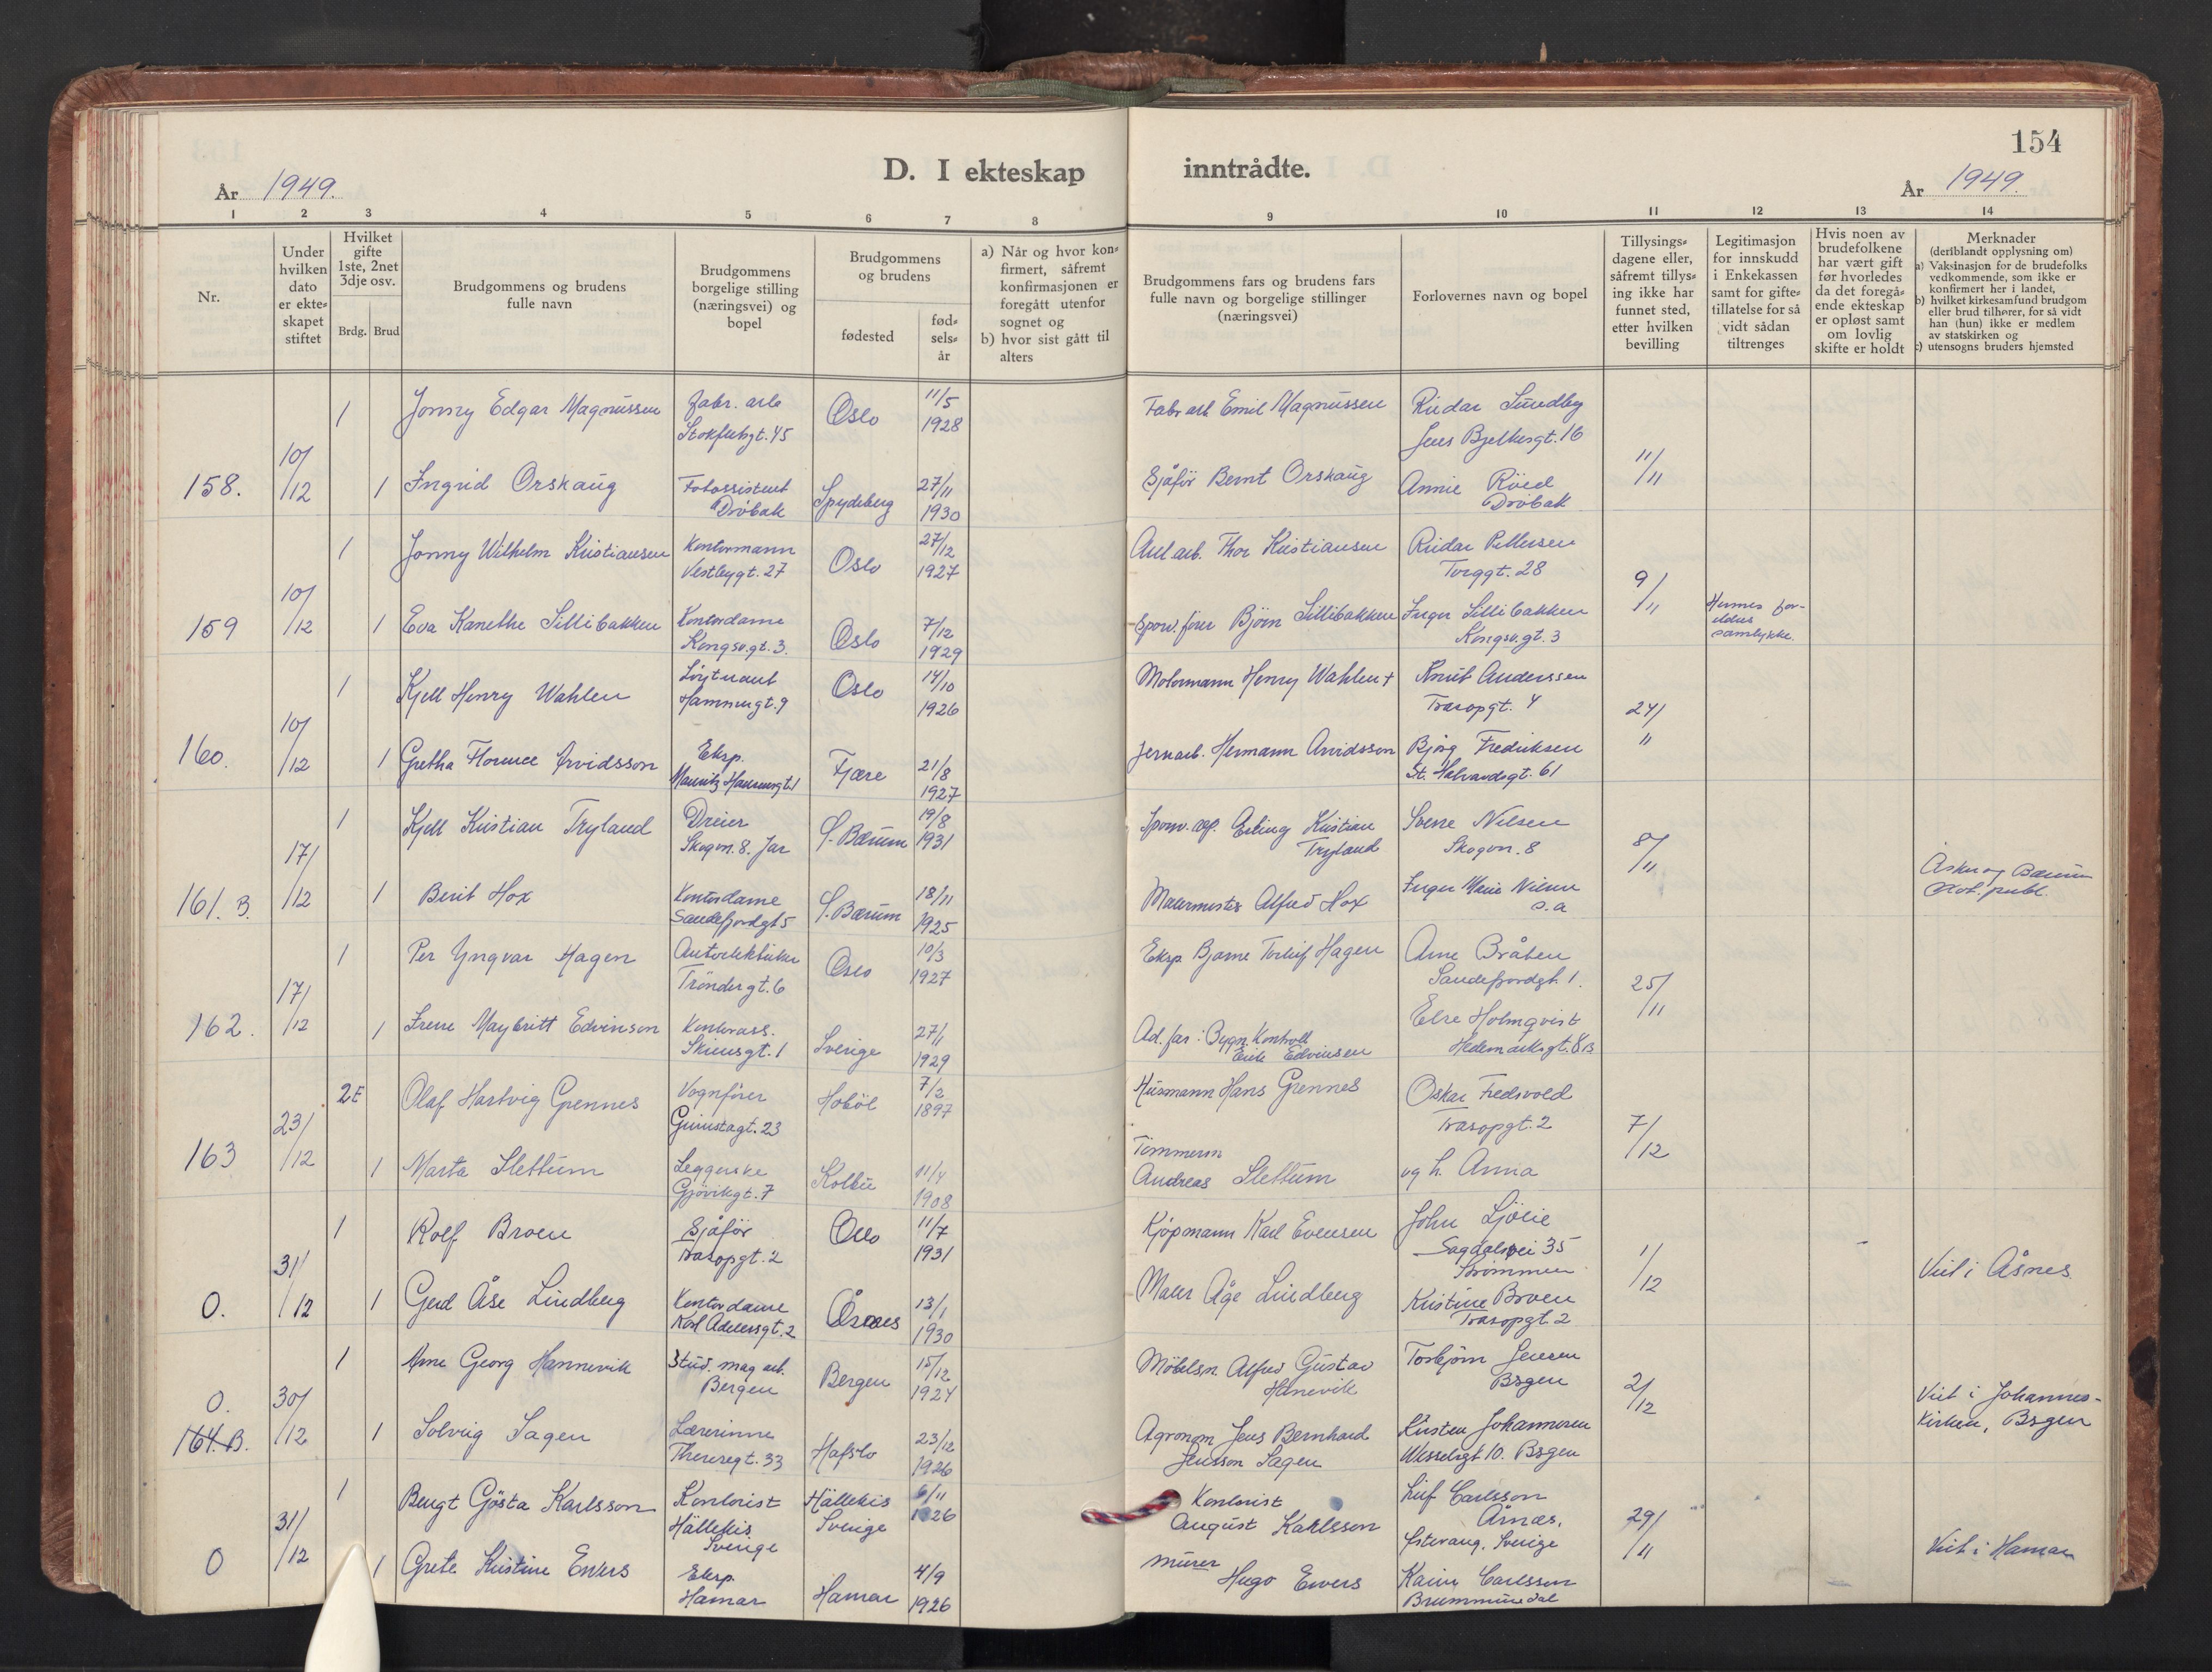 154
D. I ekteskap inntrådte.
År 1949.
År 1949.
1 2 3 4 5 6 7 8 9 10 11 12 13 14
Nr.
Under hvilken dato er ekte-skapet stiftet
Hvilket gifte 1ste, 2net 3dje osv.
Brdg. Brud
Brudgommens og brudens fulle navn
Brudgommens borgelige stilling (næringsvei) og bopel
Brudgommens og brudens
fødested
fød-sels-år
a) Når og hvor kon-firmert, såfremt konfirmasjonen er foregått utenfor sognet og
b) hvor sist gått til alters
Brudgommens fars og brudens fars fulle navn og borgelige stillinger (næringsvei)
Forlovernes navn og bopel
Tillysings-dagene eller, såfremt tillys-ing ikke har funnet sted, etter hvilken bevilling
Legitimasjon for innskudd i Enkekassen samt for gifte-tillatelse for så vidt sådan tiltrenges
Hvis noen av brudefolkene har vært gift før hvorledes da det foregå-ende ekteskap er opløst samt om lovlig skifte er holdt
Merknader
(deriblandt opplysning om)
a) Vaksinasjon for de brudefolks vedkommende, som ikke er konfirmert her i landet,
b) hvilket kirkesamfund brudgom eller brud tilhører, for så vidt han (hun) ikke er medlem av statskirken og
c) utensogns bruders hjemsted
1 Jonny Edgar Magnussen Fabr. arb Oslo 11/5 1928 Fabr arb Emil Magnussen Reidar Sundby
Jens Bjelkesgt. 16
158. 10/12 1 Ingrid Orskaug Drøbak Spydeberg 27/11 1930 Sjåfør Bernt Orskaug Annie Röed
Drøbak 11/11
1 Jonny Wilhelm Kristiansen Kontormann
Vestbygt. 27 Oslo 27/12 1927 Thor Kristiansen Reidar Pettersen
Torggt. 28
159 10/12 1 Eva Kanethe Sillibakken Kontordame
Kongsv.gt. 3. Oslo 7/12 1929 Sporv.fører Bjørn Sillibakken Inger Sillibakken
Kongsv.gt. 3 9/11 samtykke.
1 Kjell Henry Wahlen Løytnant
Hammergt. 9 Oslo 14/10 1926 Motormann Henry Wahlen + Knut Anderssen
Trasopgt. 4
160. 10/12 1 Gretha Florence Arvidsson Eksp. Fjære 21/8 1927 Jernarb. Hermann Arvidsson Bjørg Fredriksen
St. Halvardsgt. 61 24/11
1 Kjell Kristian Tryland Dreier
Skogvn. 8. Jar S. Bærum 19/8 1931 Erling Kristian
Tryland Sverre Nilsen
Skogvn. 8
161. B. 17/12 1 Berit Hox Kontordame
Sandefjordgt 5 S. Bærum 18/11 1925 Malermester Alfred Hox Inger Marie Nilsen
s.a 8/11 Asker og Bærum
Not. publ.
1 Per Yngvar Hagen Autoelektriker
Tröndergt. 6 Oslo 10/3 1927 Eksp Bjarne Torleif Hagen Arne Bråten
Sandefjordgt. 1.
162. 17/12 1 Irene Maybritt Edvinson Kontorass.
Skiensgt. 1 Sverige 27/1 1929 Ad. far: Bygn. Kontroll
Erik Edvinsen Else Holmqvist
Hedemarksgt. 8B 25/11
2E Olaf Hartvig Grennes Vognfører
Grimstagt. 23 Hobøl 7/2 1897 Husmann Hans Grennes Oskar Fredsvold
Trasopgt. 2
163 23/12 1 Marta Slettum Leggerske
Gjövikgt. 7 Kolbu 11/4 1908 Tömmerm
Andreas Slettum og h. Anna 7/12
1 Rolf Broen Sjåfør
Trasopgt. 2 Oslo 11/7 1931 Kjøpmann Karl Evensen John Ljölie
Sagdalsvei 35
Strömmen
0. 31/12 1 Gerd Åse Lindberg Kontordame
Karl Adelersgt. 2 Åsnes 13/1 1930 Maler Åge Lindberg Kristine Broen
Trasopgt. 2 1/12 Viet i Åsnes
1 Arne Georg Hannevik Stud. mag art.
Bergen Bergen 15/12 1924 Möbelsn. Alfred Gustav
Hanevik Torbjørn Jensen
Bsgen
0. 164. B. 30/12 1 Solveig Sagen Lærerinne
Theresegt. 33 Hafslo 23/12 1926 Agronom Jens Bernhard
Jensson Sagen Kirsten Johannesen
Wesselsgt 10. Bsgen 2/12 Viet i Johannes-
kirken, Bsgen
1 Bengt Gösta Karlsson Kontorist
Hällekis
Sverige Hällekis
Sverige 6/11 1926 Kontorist
August Karlsson Leif Carlsson
Årnäs,
Sverige
0 31/12 1 Grete Kristine Ewers Eksp.
Hamar Hamar 4/9 1926 Murer
Hugo Ewers Karin Carlsson
Brummundal 29/11 Viet i Hamar